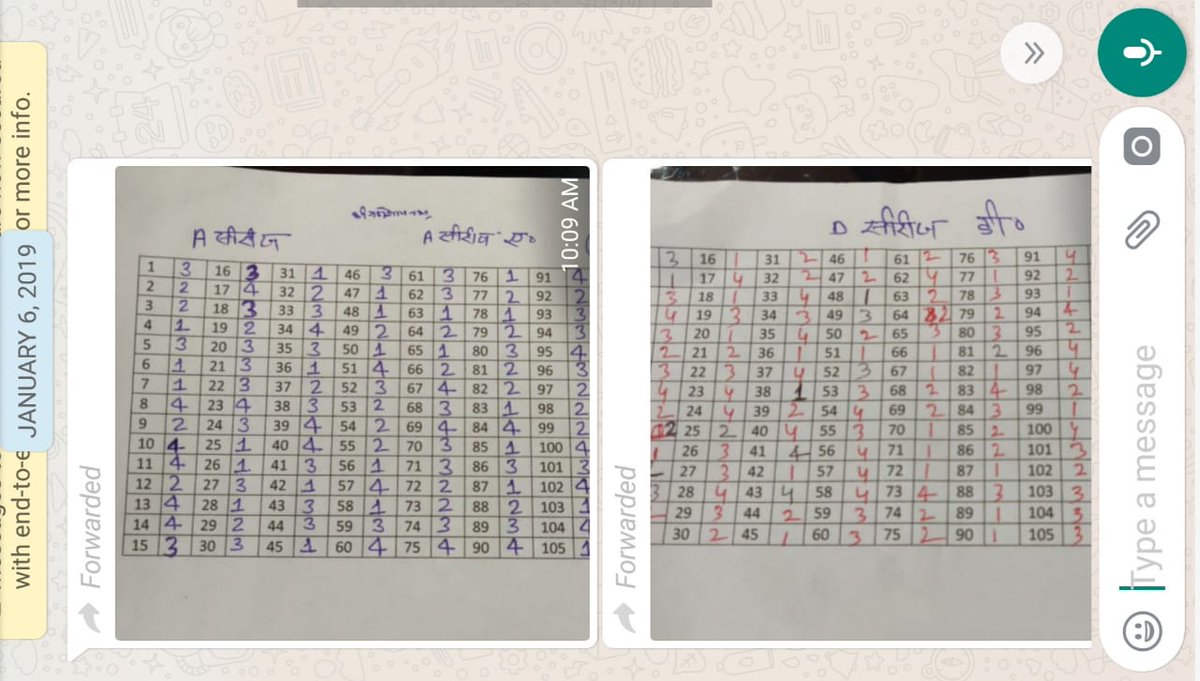 with end-to-e
or more info.
JANUARY 6, 2019
Forwarded
A सीरीज
A सीरीज ए०
1 3 16 3 31 1 46 3 61 3 76 1 91 4
2 2 17 4 32 2 47 1 62 3 77 2 92 2
3 2 18 3 33 3 48 1 63 1 78 1 93 3
4 1 19 2 34 4 49 2 64 2 79 2 94 3
5 3 20 3 35 3 50 1 65 1 80 3 95 4
6 1 21 3 36 1 51 4 66 2 81 2 96 3
7 1 22 3 37 2 52 3 67 4 82 2 97 2
8 4 23 4 38 3 53 2 68 3 83 1 98 2
9 2 24 3 39 4 54 2 69 4 84 4 99 2
10 4 25 1 40 4 55 2 70 3 85 1 100 4
11 4 26 1 41 3 56 1 71 3 86 3 101 3
12 2 27 3 42 1 57 4 72 2 87 1 102 4
13 4 28 1 43 3 58 1 73 2 88 2 103 1
14 4 29 2 44 3 59 3 74 3 89 3 104 4
15 3 30 3 45 1 60 4 75 4 90 4 105 1
10:09 AM
Forwarded
D सीरीज डी०
3 16 1 31 2 46 1 61 2 76 3 91 4
1 17 4 32 2 47 2 62 4 77 1 92 2
3 18 1 33 4 48 1 63 2 78 3 93 1
4 19 3 34 3 49 3 64 2 79 2 94 4
3 20 1 35 4 50 2 65 3 80 3 95 2
2 21 2 36 1 51 1 66 1 81 2 96 4
3 22 3 37 4 52 3 67 1 82 1 97 4
4 23 4 38 1 53 3 68 2 83 4 98 2
2 24 4 39 2 54 4 69 2 84 3 99 1
2 25 2 40 4 55 3 70 1 85 2 100 4
1 26 3 41 4 56 4 71 1 86 2 101 3
27 3 42 1 57 4 72 1 87 1 102 2
3 28 4 43 4 58 4 73 4 88 3 103 3
29 3 44 2 59 3 74 2 89 1 104 3
30 2 45 1 60 3 75 2 90 1 105 3
Type a message